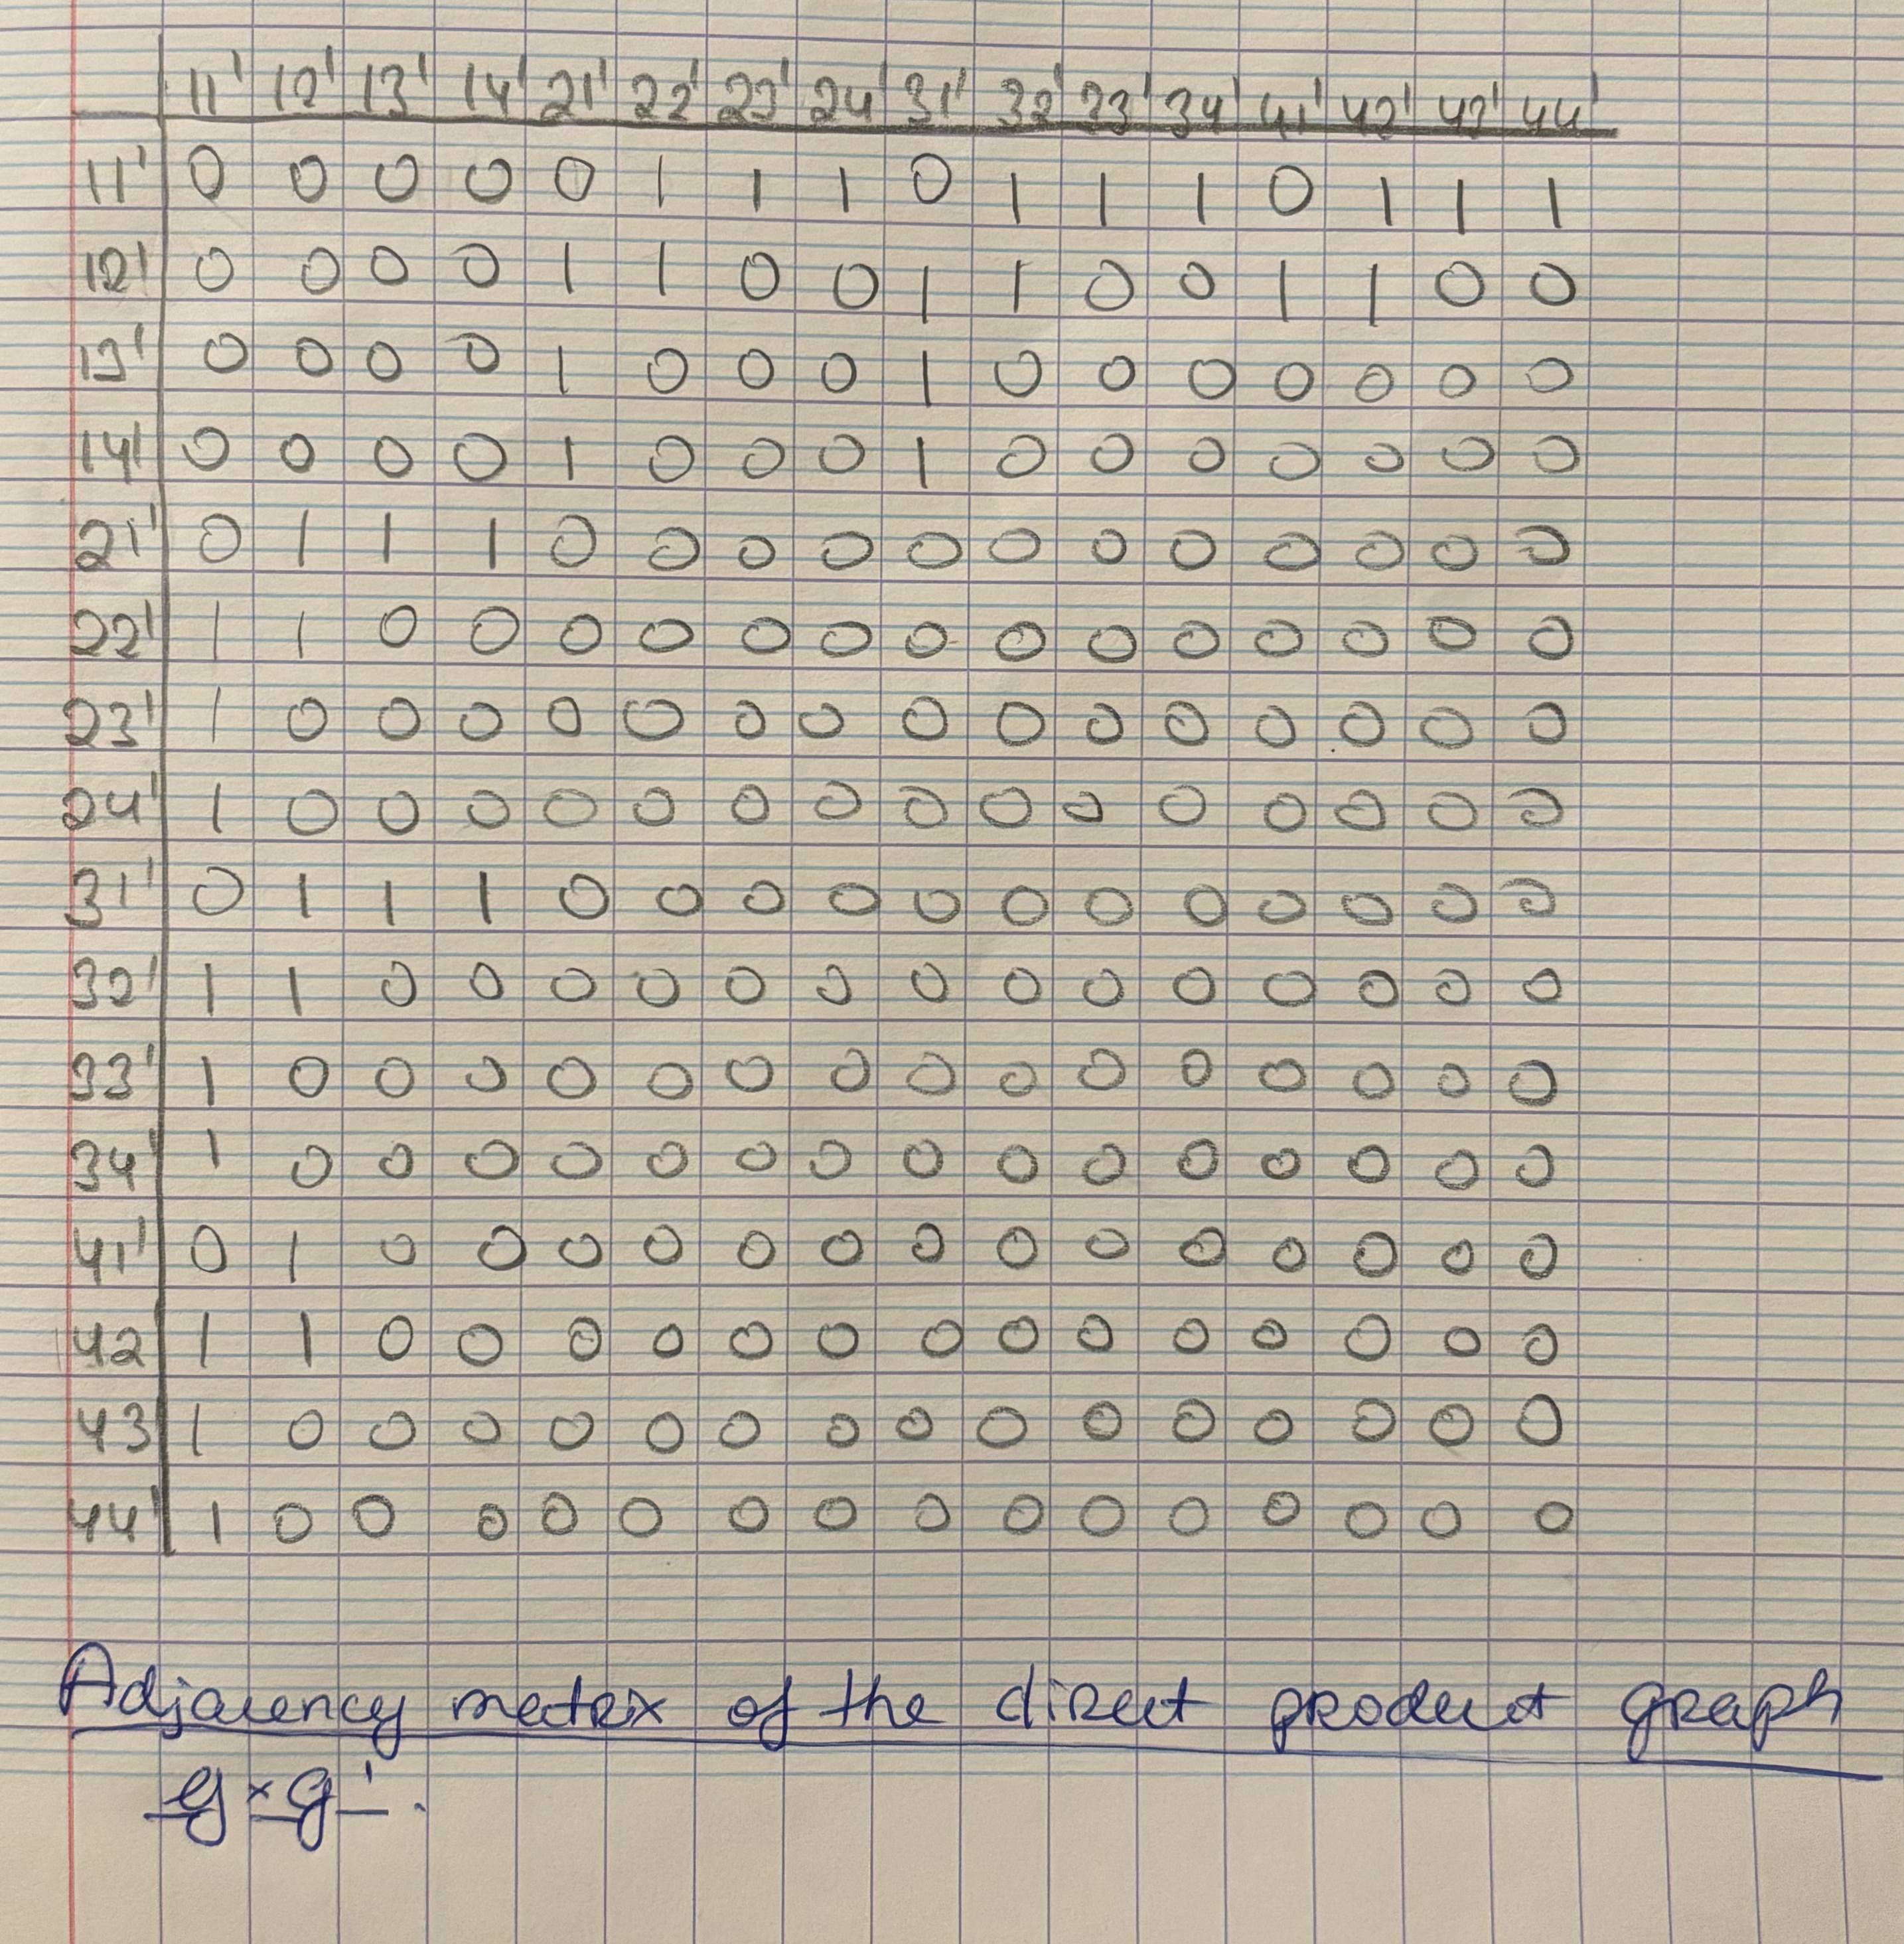 11' 12' 13' 14' 21' 22' 23' 24' 31' 32' 33' 34' 41' 42' 43' 44'
11' 0 0 0 0 0 1 1 1 0 1 1 1 0 1 1 1
12' 0 0 0 0 1 1 0 0 1 1 0 0 1 1 0 0
13' 0 0 0 0 1 0 0 0 1 0 0 0 0 0 0 0
14' 0 0 0 0 1 0 0 0 1 0 0 0 0 0 0 0
21' 0 1 1 1 0 0 0 0 0 0 0 0 0 0 0 0
22' 1 1 0 0 0 0 0 0 0 0 0 0 0 0 0 0
23' 1 0 0 0 0 0 0 0 0 0 0 0 0 0 0 0
24' 1 0 0 0 0 0 0 0 0 0 0 0 0 0 0 0
31' 0 1 1 1 0 0 0 0 0 0 0 0 0 0 0 0
32' 1 1 0 0 0 0 0 0 0 0 0 0 0 0 0 0
33' 1 0 0 0 0 0 0 0 0 0 0 0 0 0 0 0
34' 1 0 0 0 0 0 0 0 0 0 0 0 0 0 0 0
41' 0 1 0 0 0 0 0 0 0 0 0 0 0 0 0 0
42 1 1 0 0 0 0 0 0 0 0 0 0 0 0 0 0
43 1 0 0 0 0 0 0 0 0 0 0 0 0 0 0 0
44' 1 0 0 0 0 0 0 0 0 0 0 0 0 0 0 0
Adjacency matrix of the direct product graph
g × g'.